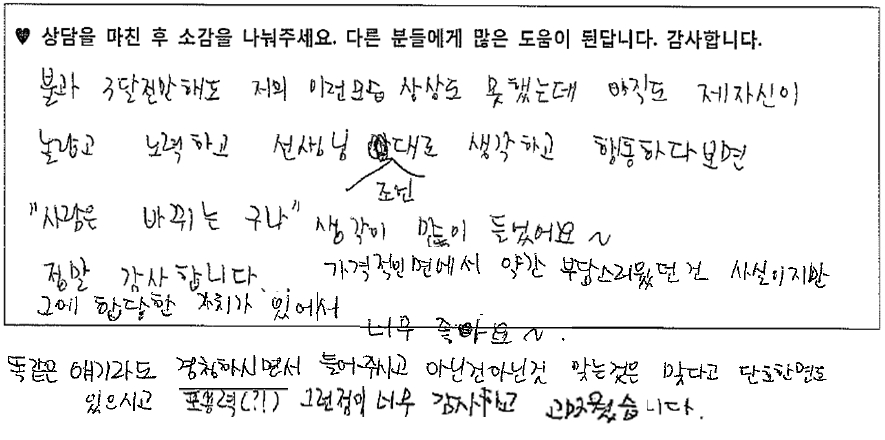 ♥ 상담을 마친 후 소감을 나눠주세요. 다른 분들에게 많은 도움이 된답니다. 감사합니다.
불과 3달전만해도 저의 이런모습 상상도 못했는데 아직도 제자신이
놀랍고 노력하고 선생님 조언대로 생각하고 행동하다보면
"사람은 바뀌는 구나" 생각이 많이 들었어요~
정말 감사합니다. 가격적인면에서 약간 부담스러웠던건 사실이지만
그에 합당한 가치가 있어서
너무 좋아요~.
똑같은 얘기라도 경청하시면서 들어주시고 아닌건아닌것 맞는것은 맞다고 단호한면도
있으시고 포용력(?!) 그런점이 너무 감사하고 고마웠습니다.